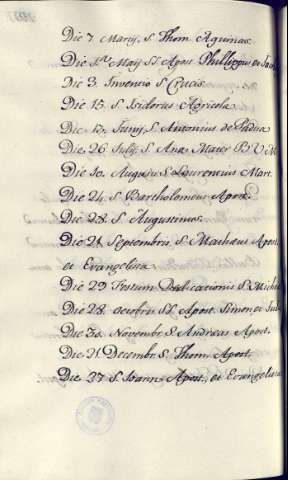 Die 7. Martij S. Thom Aquinas.
Die 1ma Maij SS. Apost Philippus et Jaco
Die 3. Inventio S. Crucis.
Die 15. S. Isidorus Agricola.
Die 13. Junij S. Antonius de Padua
Die 26 Julij S. Ana Mater B V M
Die 10. Augusti S. Laurencius Mart.
Die 24. S. Bartholomeus Apost.
Die 28. S. Augustinus.
Die 21. Septembris S. Mathæus Apost
et Evangelista.
Die 29 Festum Dedicationis S. Micha
Die 28. Octobris SS. Apost Simon et Jud
Die 30. Novembr S. Andreas Apost.
Die 21. Decembr S. Thom Apost.
Die 27 S. Ioann Apost, et Evangelista